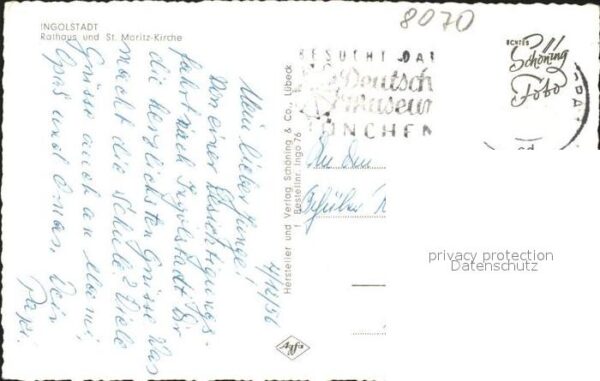 INGOLSTADT
Rathaus und St. Moritz-Kirche
8070
4/12/56
Mein lieber Junge!
Von einer Besichtigungs-
fahrt nach Ingolstadt Dir
die herzlichsten Grüsse. Was
macht die Schule? Viele
Grüsse auch an Mami,
Opas und Omas. Dein
Papi.
Hersteller und Verlag Schöning & Co., Lübeck
Bestellnr. Ingo 76
Agfa
BESUCHT DAS
Deutsche
Museum
MÜNCHEN
ECHTES
Schöning
Foto
An den
Schüler
privacy protection
Datenschutz